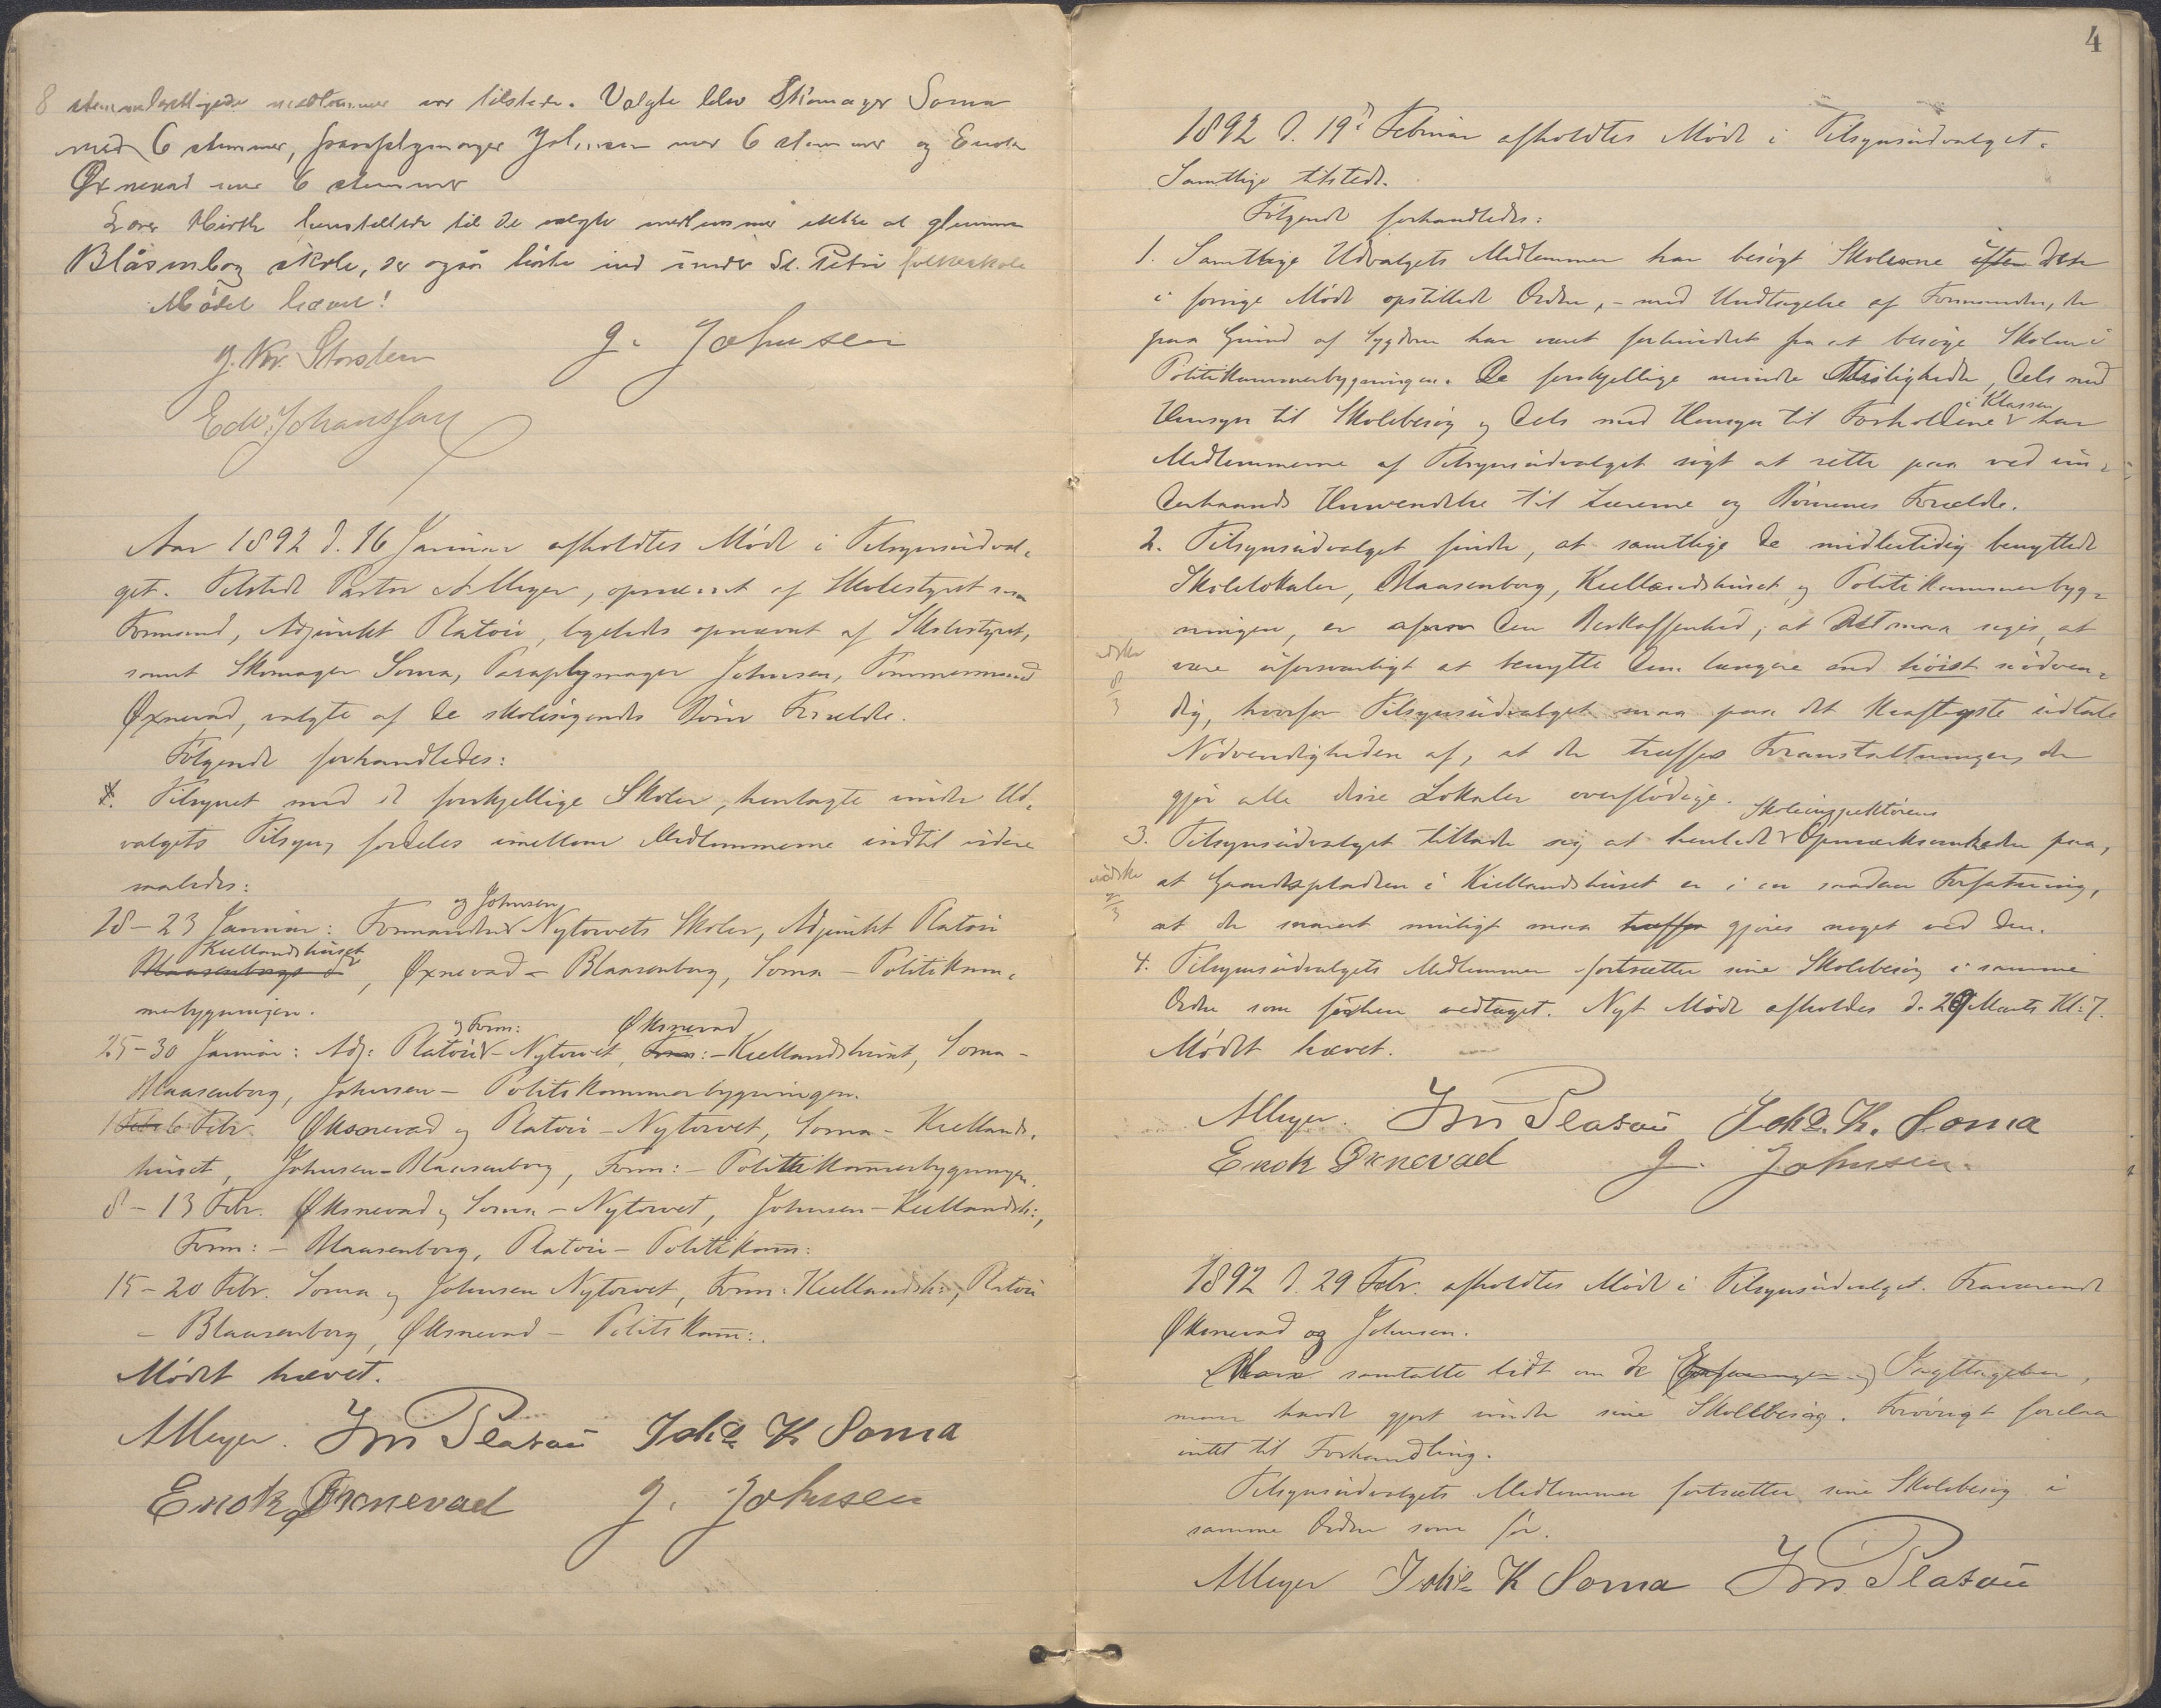 8 stemmeberettigede medlemmer var tilstede. Valgte blev Skomager Soma
med 6 stemmer, paraplymager Johnsen med 6 stemmer og Enok
Øxnevad med 6 stemmer
Lærer Hirth henstillede til de valgte medlemmer ikke at glemme
Blåsenborg skole, der også hørte ind under St. Petri folkeskole
Mødet hævet!
J. Kr. Storsten
J. Johnsen
Edv. Johanssen
Aar 1892 d. 16 Januar afholdtes Møde i Tilsynsudval-
get. Tilstede Pastor A Meyer, opnævnt af Skolestyret som
Formand, Adjunkt Platou, ligeledes opnævnt af Skolestyret,
samt Skomager Soma, Paraplymager Johnsen, Tømmermand
Øxnevad, valgte af de skolesøgende Børns Forældre.
Følgende forhandledes:
1. Tilsynet med de forskjellige Skoler, henlagte under Ud-
valgets Tilsyn, fordeles imellem Medlemmerne indtil videre
saaledes:
og Johnsen
18-23 Januar: Formanden Nytorvets Skoler, Adjunkt Platou
Kiellandshuset
Blaasenborg , Øxnevad - Blaasenborg, Soma - Politikam-
merbygningen.
og Form: Øksnevad
25-30 Januar: Adj: Platou - Nytorvet, Form: - Kiellandshuset, Soma -
Blaasenborg, Johnsen - Politikammerbygningen.
1 Febr 6 Febr. Øksnevad og Platou - Nytorvet, Soma - Kiellands-
huset, Johnsen - Blaasenborg, Form: - Politikammerbygningen.
8-13 Febr. Øksnevad og Soma - Nytorvet, Johnsen - Kiellandsh:,
Form: - Blaasenborg, Platou - Politikam:
15-20 Febr. Soma og Johnsen Nytorvet, Form: Kiellandsh:, Platou
- Blaasenborg, Øksnevad - Politikam:.
Mødet hævet.
AMeyer. Platou Johs K Soma
Enok Øxnevad J. Johnsen
4
1892 d. 19de Februar afholdtes Møde i Tilsynsudvalget.
Samtlige tilstede.
Følgende forhandledes:
1. Samtlige Udvalgets Medlemmer har besøgt Skolerne efter den
i forrige Møde opstillede Orden, - med Undtagelse af Formanden, der
paa Grund af Sygdom har været forhindret fra at besøge Skolen i
Politikammerbygningen. De forskjellige mindre Misligheder, dels med
i Klassen
Hensyn til Skolebesøg og dels med Hensyn til Forholdene har
Medlemmerne af Tilsynsudvalget søgt at rette paa ved un-
derhaands Henvendelse til Lærerne og Børnenes Forældre.
2. Tilsynsudvalget finder, at samtlige de midlertidig benyttede
Skolelokaler, Blaasenborg, Kiellandshuset og Politikammerbyg-
ningen, er af den Beskaffenhed, at det maa siges at
være uforsvarligt at benytte dem længere end høist nødven-
8/3
dig, hvorfor Tilsynsudvalget maa paa det kraftigste udtale
Nødvendigheden af, at der træffes Foranstaltninger, der
gjør alle disse Lokaler overflødige.
Skoleinspektørens
3. Tilsynsudvalget tillader sig at henlede Opmærksomheden paa,
at Gaardspladsen i Kiellandshuset er i en saadan Forfatning,
at der snarest muligt maa træffes gjøres noget ved den.
4. Tilsynsudvalgets Medlemmer fortsætter sine Skolebesøg i samme
Orden som forhen vedtaget. Nyt Møde afholdes d. 29 Marts Kl: 7.
Mødet hævet.
AMeyer. Platou Johs. K. Soma
Enok Øxnevad J. Johnsen.
1892 d. 29 Febr. afholdtes Møde i Tilsynsudvalget. Fraværende
Øksnevad og Johnsen.
Man samtalte lidt om de Erfaringer og Iagttagelser,
man havde gjort under sine Skolebesøg. Forøvrigt forelaa
intet til Forhandling.
Tilsynsudvalgets Medlemmer fortsætter sine Skolebesøg i
samme Orden som før.
AMeyer Johs K Soma Platou